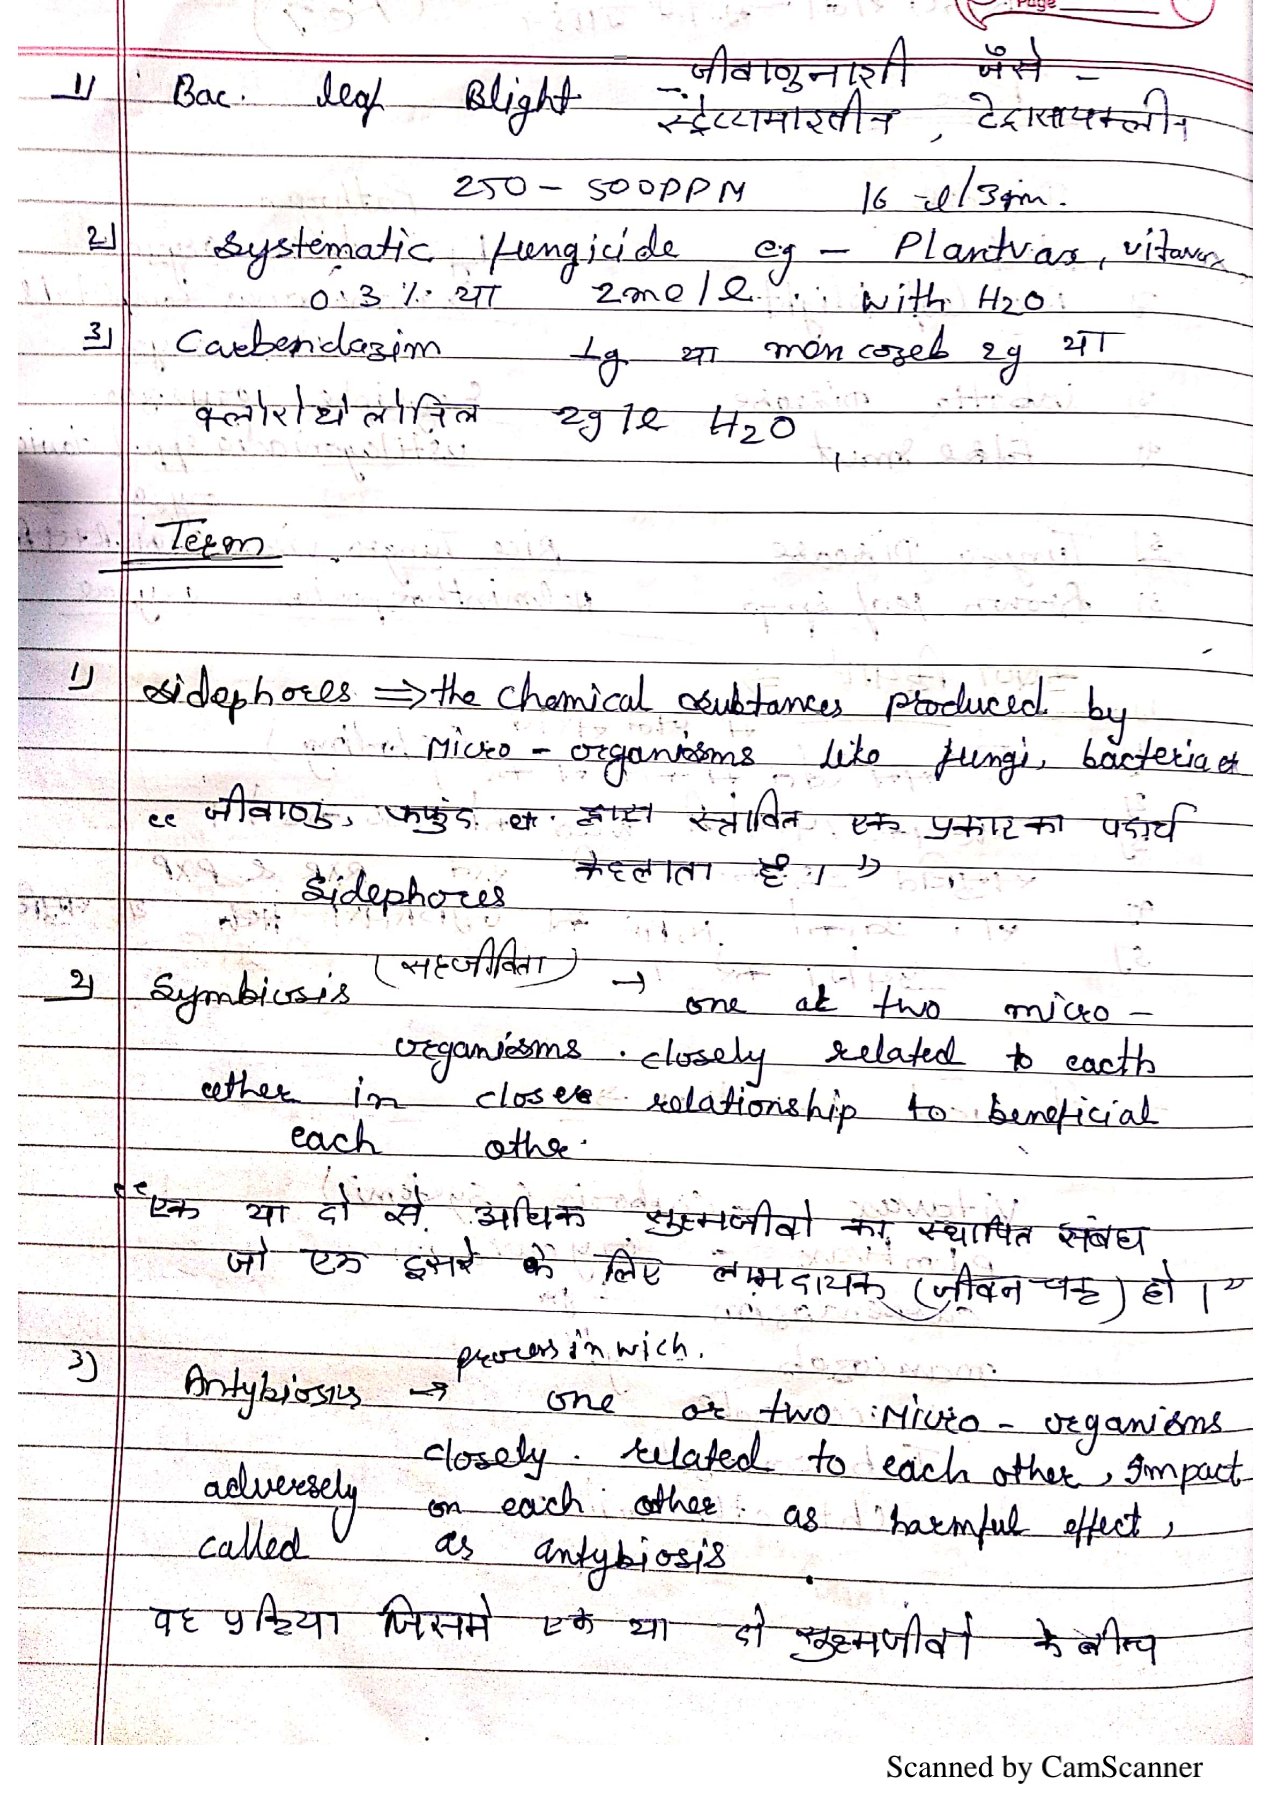 Page
1) Bac. leaf Blight - जीवाणुनाशी जैसे -
स्ट्रेप्टामाइसीन, टेट्रासायक्लीन
250 - 500PPM 16 l/3gm.
2) Systematic fungicide eg - Plantvax, vitavax
0.3 % या 2me/l with H2O
3) Carbendazim 1g या moncozeb 2g या
क्लोरोथेलोनिल 2g/l H2O
Term
1) Sidephores ⇒ the chemical subtances produced by
Micro - organisms like fungi, bacteria etc
“ जीवाणु, फफुंद etc द्वारा स्त्रावित एक प्रकार का पदार्थ
Sidephores केहलाता है। ”
2) Symbiosis (सहजीविता) → one at two micro -
organisms closely related to eacth
other in closer relationship to beneficial
each othe.
“ एक या दो से अधिक सुक्ष्मजीवो का स्थापित संबंध
जो एक दुसरे के लिए लाभदायक (जीवन चक्र) हो।”
3) Antybiosis → process in wich.
one or two Micro - organisms
closely related to each other, Impact
adversely on each other as harmful effect,
called as antybiosis.
वह प्रक्रिया जिसमे एक या दो सुक्ष्मजीवो के बीच
Scanned by CamScanner